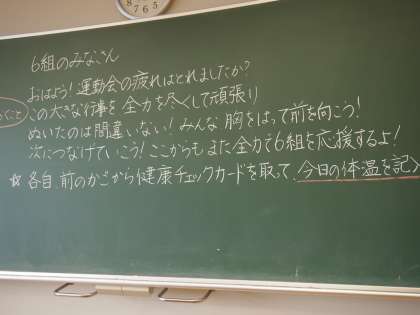 8 7 6 5
6組のみなさん
おはよう! 運動会の疲れはとれましたか?
この大きな行事を 全力を尽くして頑張り
ぬいたのは間違いない! みんな 胸をはって前を向こう!
次につなげていこう! ここからもまた全力で6組を応援するよ!
☆ 各自、前のかごから健康チェックカードを取って、今日の体温を記入